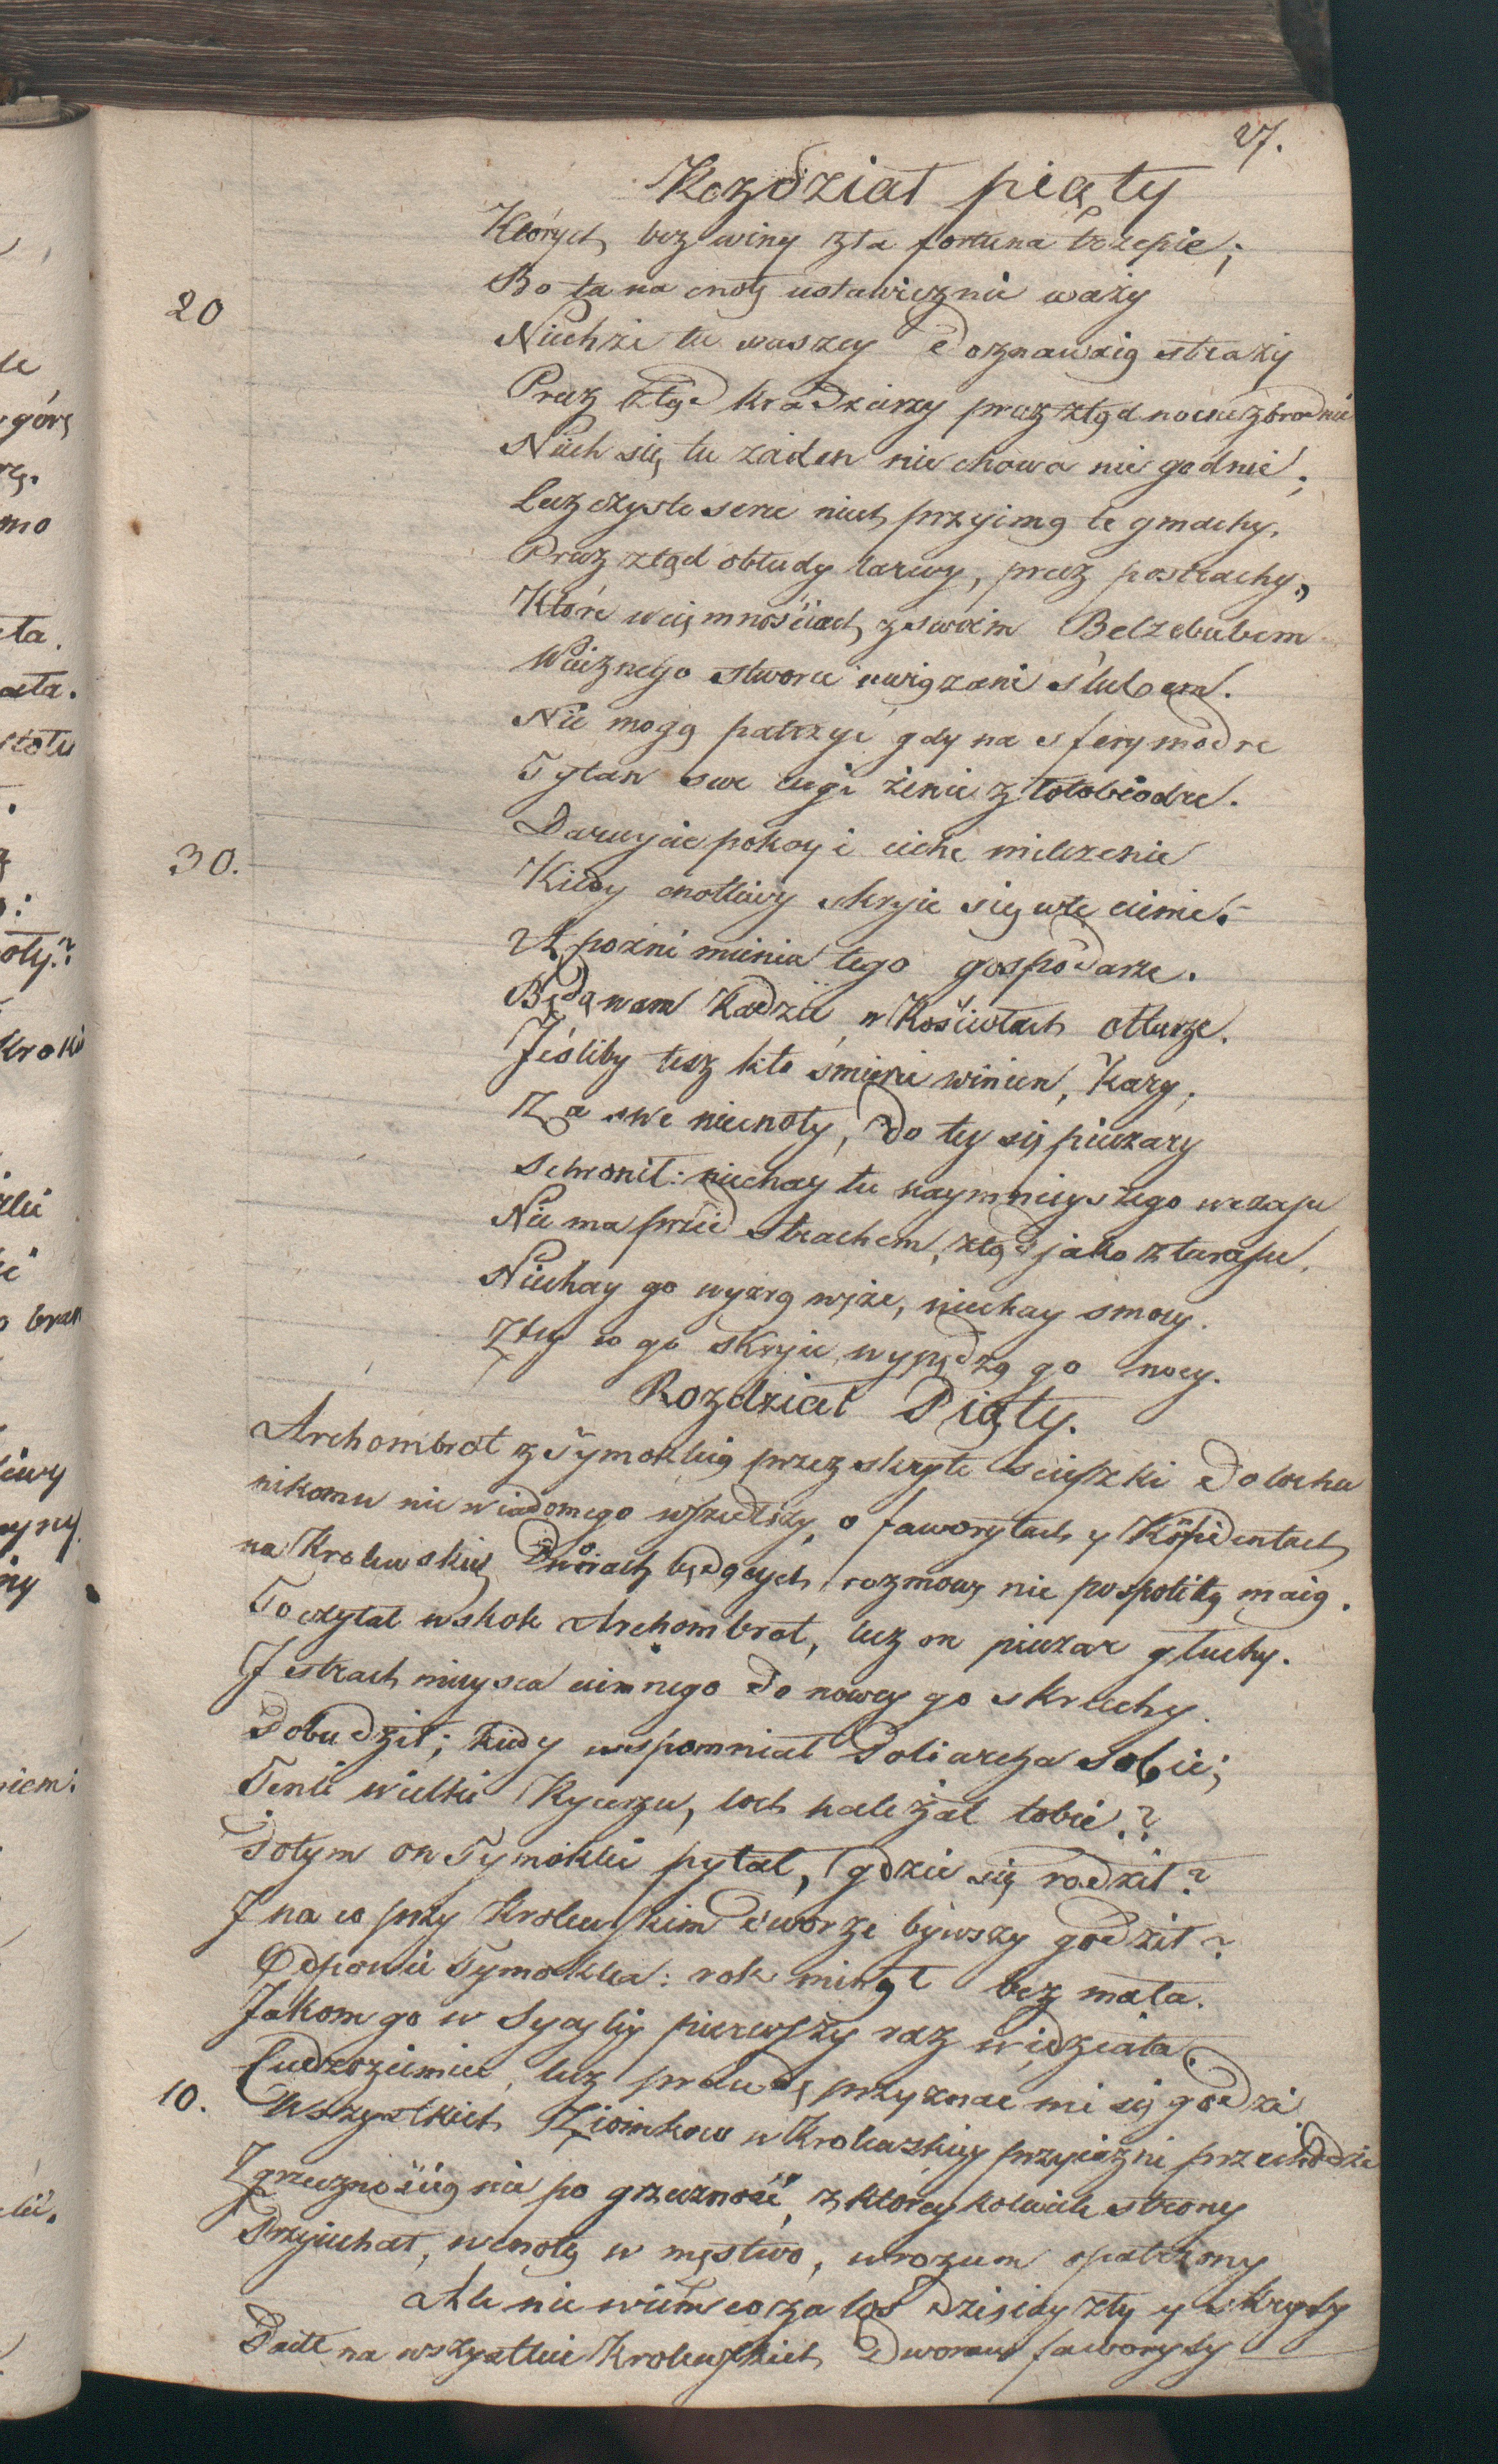 27.
Rozdział piąty
Których bez winy zła fortuna trzepie;
Bo ta na cnotę ustawicznie waży
20
Niechże tu waszey doznawaią straży
Precz ztąd kradzierzy precz ztąd nocne zbrodnie
Niech się tu żaden nie chowa nie godnie;
Lecz czyste serce niech przyimą te gmachy.
Precz ztąd obłudy larwy, precz postrachy,
Które w ciemnościach z swoim Belzebubem
Wiecznego stworce uwiązani ślubem.
Nie mogą patrzyć gdy na sfery modre
Tytan swe cugi żenie złotobiodre.
Daruycie pokoy i ciche milczenie
30.
Kiedy cnotliwy skryie się w te cienie.
A pozni mienia tego gospodarze.
Będą wam kadzić w Kościołach ołtarze.
Jeśliby tesz kto śmierci winien, kary,
Za swe niecnoty, do tey się pieczary
schronił: niechay tu naymnieyszego wczasu
Nie ma przed strachem, ztąd jako z tarasu.
Niechay go wyżrą węże, niechay smocy.
Ztey co go skryie wypędzą go nocy.
Rozdział Piąty.
Archombrot z Tymoklią przez skryte scieszki do lochu
nikomu nie wiadomego wszedłszy, o faworytach y Kõfidentach
na Krolewskich Dworach będących, rozmowę nie pospolitą maią.
To czytał wskok Archombrot, lecz on pieczar głuchy.
J strach mieysca ciemnego do nowey go skruchy.
Dobudził; kiedy wspomniał Poliarcha sobie;
Tenli wielki Rycerzu, loch należał tobie?
Potym on Tymoklei pytał, gdzie się rodził?
J na co przy Krolewskim dworze bywszy godził?
Odpowie Tymoklea: rok minął bez mała.
Jakom go w Sycylij pierwszy raz widziała.
Cudzoziemiec, lecz prawdę przyznać mi się godzi
10.
Wszystkich Ziomkow w Krolewskiey przyiazni przechodzi
Zgrzecznością nie po grzeczność, z ktorey kolwiek strony
Przyiechał, w cnotę w męstwo, w rozum opatrzony
Ale nie wiem co za los dzisieyszy y skryty
Padł na wszystkie Krolewskich Dworow faworyty